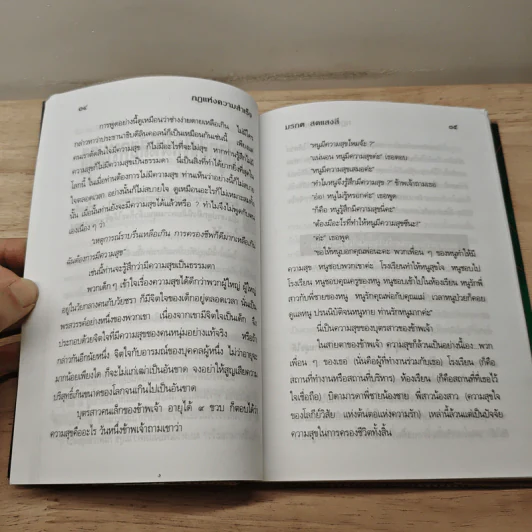 ๓๔ กฎแห่งความสำเร็จ
การพูดอย่างนี้ดูเหมือนว่าช่างง่ายดายเหลือเกิน ไม่มีใคร
กล่าวสดุว่าประธานาธิบดีลินคอล์นก็เป็นเหมือนกันเช่นนี้ เพียงแต่
คนเราตัดสินใจมีความสุข ก็ไม่มีอะไรที่จะไม่สุข หากท่านรู้สึกว่ามี
ความสุขก็ไม่มีความสุขเป็นธรรมดา นี่เป็นสิ่งที่ทำได้ยากยิ่งที่สุดใน
โลกนี้ ในเมื่อท่านต้องการไม่มีความสุข ท่านเห็นว่าอย่างนี้ก็ไม่สบาย
ใจตลอดเวลา อย่างนั้นก็ไม่สบายใจ ดูเหมือนอะไรก็ไม่เหมาะสมทั้ง
นั้น เมื่อนั้นท่านยังจะมีความสุขได้แล้วหรือ ? ทำไมจึงไม่พูดกับตน
เองเนือง ๆ ว่า
"เหตุการณ์ราบรื่นเหลือเกิน การครองชีพก็ดีมากเหลือเกิน
ฉันต้องการมีความสุข"
เช่นนี้ท่านจะรู้สึกว่ามีความสุขเป็นธรรมดา
พวกเด็ก ๆ เข้าใจเรื่องความสุขได้ดีกว่าพวกผู้ใหญ่ ผู้ใหญ่
อยู่ในวัยกลางคนกับวัยชรา ก็มีจิตใจของเด็กอยู่ตลอดเวลา นั่นเป็น
พรสวรรค์อย่างหนึ่งของพวกเขา เนื่องจากเขามีจิตใจเป็นเด็ก จึง
ประกอบด้วยจิตใจที่มีความสุขของคนหนุ่มอย่างแท้จริง หรือจะ
กล่าวกันอีกนัยหนึ่ง จิตใจกับอารมณ์ของบุคคลผู้หนึ่ง ไม่ว่าอายุจะ
มากน้อยเพียงใด ก็จะไม่แก่เฒ่าเป็นอันขาด จงอย่าให้สูญเสียความ
บริสุทธิ์เกินขนาดของโลกจนเกินไปเป็นอันขาด
บุตรสาวคนเล็กของข้าพเจ้า อายุได้ ๙ ขวบ ก็ตอบได้ว่า
ความสุขคืออะไร วันหนึ่งข้าพเจ้าถามเขาว่า
มรกต สดแสงสี ๓๕
"หนูมีความสุขไหมจ๊ะ ?"
"แน่นอน หนูมีความสุขค่ะ" เธอตอบ
"หนูมีความสุขเสมอค่ะ"
"ทำไมหนูจึงรู้สึกมีความสุข ?" ข้าพเจ้าถามเธอ
"อ๋อ หนูไม่รู้หรอกค่ะ" เธอพูด
"ก็คือ หนูรู้สึกมีความสุขนี่คะ"
"ต้องมีอะไรที่ทำให้หนูมีความสุขซีนะ!"
"ค่ะ" เธอพูด
"ขอให้หนูบอกคุณพ่อนะคะ พวกเพื่อน ๆ ของหนูทำให้มี
ความสุข หนูชอบพวกเขาค่ะ โรงเรียนทำให้หนูสุขใจ หนูชอบไป
โรงเรียน หนูชอบคุณครูของหนู หนูชอบเข้าไปในห้องเรียน หนูรักพี่
สาวกับพี่ชายของหนู หนูรักคุณพ่อกับคุณแม่ เวลาหนูป่วยก็คอย
ดูแลหนู ปรนนิบัติจนหนูหาย ท่านรักหนูมากค่ะ"
นี่เป็นความสุขของบุตรสาวของข้าพเจ้า
ในสายตาของข้าพเจ้า ความสุขก็ล้วนเป็นอย่างนี้เอง...พวก
เพื่อน ๆ ของเธอ (นั่นคือผู้ที่ทำงานร่วมกับเธอ) โรงเรียน (ก็คือ
สถานที่ทำงานหรือสถานที่บริหาร) ห้องเรียน (ก็คือสถานที่ที่เธอไว้
ใจเชื่อถือ) บิดามารดาพี่ชายน้องชาย พี่สาวน้องสาว (ความสุขใจ
ของโลกีย์วิสัย แห่งต้นตอแห่งความรัก) เหล่านี้ล้วนแต่เป็นปัจจัย
ความสุขในการครองชีวิตทั้งสิ้น